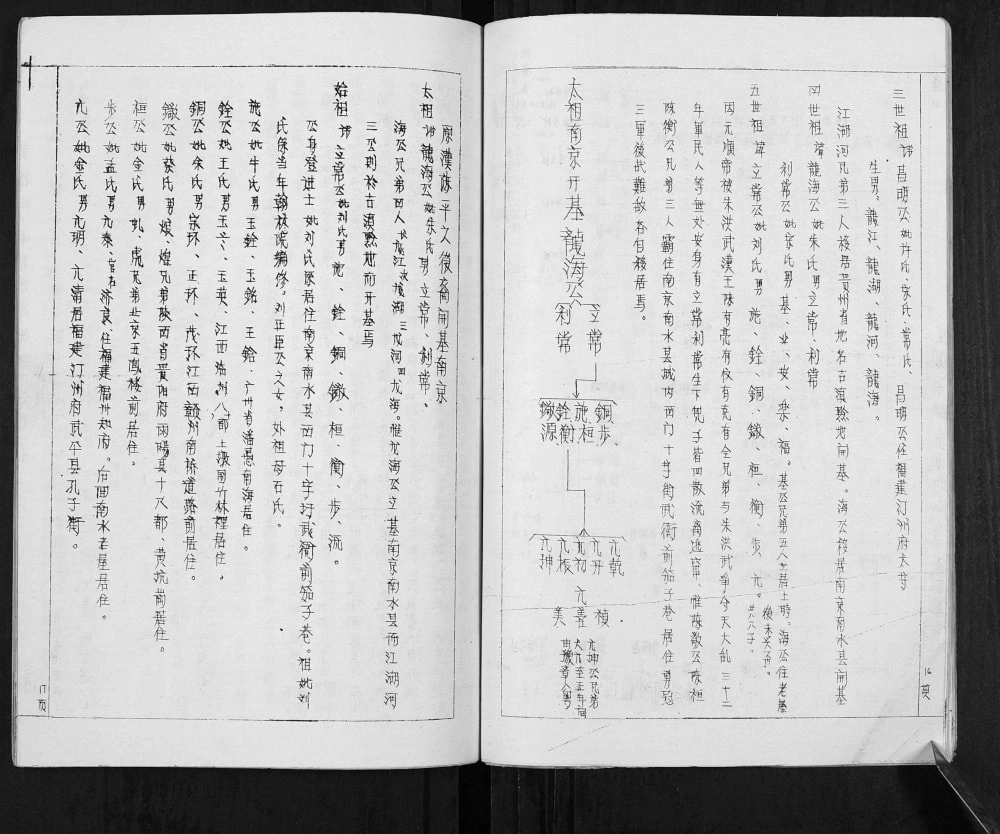 三世祖諱昌明公妣許氏、宋氏、常氏、昌明公任福建汀州府太守
生男、龍江、龍湖、龍河、龍海。
江湖河兄弟三人移居貴州省地名古滇黔地開基。海公移居南京南水县開基
四世祖諱龍海公妣朱氏男立常、利常
利常公妣宋氏男基、业、安、乐、福。基公兄弟五人居土時。海公住老基
五世祖諱立常公妣刘氏男 施、銓、銅、鐓、桓、衡、步、亢。
共八子。
因元順帝被朱洪武漢王陳有亮有权有克有全兄弟与朱洪武爭兮天大乱三十三
年軍民人等無处安身有立常利常生下兒子皆四散流离逃窜、惟陈敦公陈桓
陈衡公兄弟三人霸住南京南水县城内西门十字街武衛前茄子巷居住男冠
三軍後代難敌各自移居焉。
太祖南京开基龍海公
立常
利常
銅步、
施桓、
銓衡、
鐓源、
亢乾
亢开
亢初
亢核
亢坤
亢善
禎
美
亢坤公兄弟
16页
原漢族平之後裔開基南京
太祖諱龍海公妣朱氏男立常、利常、
海公兄弟四人 长龙江次龙湖三龙河四龙海。惟龙海公立基南京南水县而江湖河
三公列於古滇黔地而开基焉
始祖諱立常公妣刘氏男施、銓、銅、鐓、桓、衡、步、流
公身登進士妣刘氏原居住南京南水县西门十字圩武衛前茄子巷。祖妣刘
氏係当年翰林院編修。刘正臣公之女，外祖母石氏。
施公妣牛氏男玉銓、玉銘、王鏳、广州省潘恩前海居住。
銓公妣王氏男玉兰、玉英、江西温州、八部上壕周竹林裡居住，
銅公妣朱氏男宗环、正环、茂环江西贛州南桥道路前居住。
鐓公妣蔡氏男煅、煌兄弟陕西省貴阳府雨暘县十八都、黄坑崗居住。
桓公妣金氏男虬、虎兄弟北京五凤楼前居住。
步公妣孟氏男亢泰、官名济哀、任福建福州知府。后回南水老屋居住。
亢公妣金氏男亢明、亢清居福建汀州府武平县孔子街。
17页